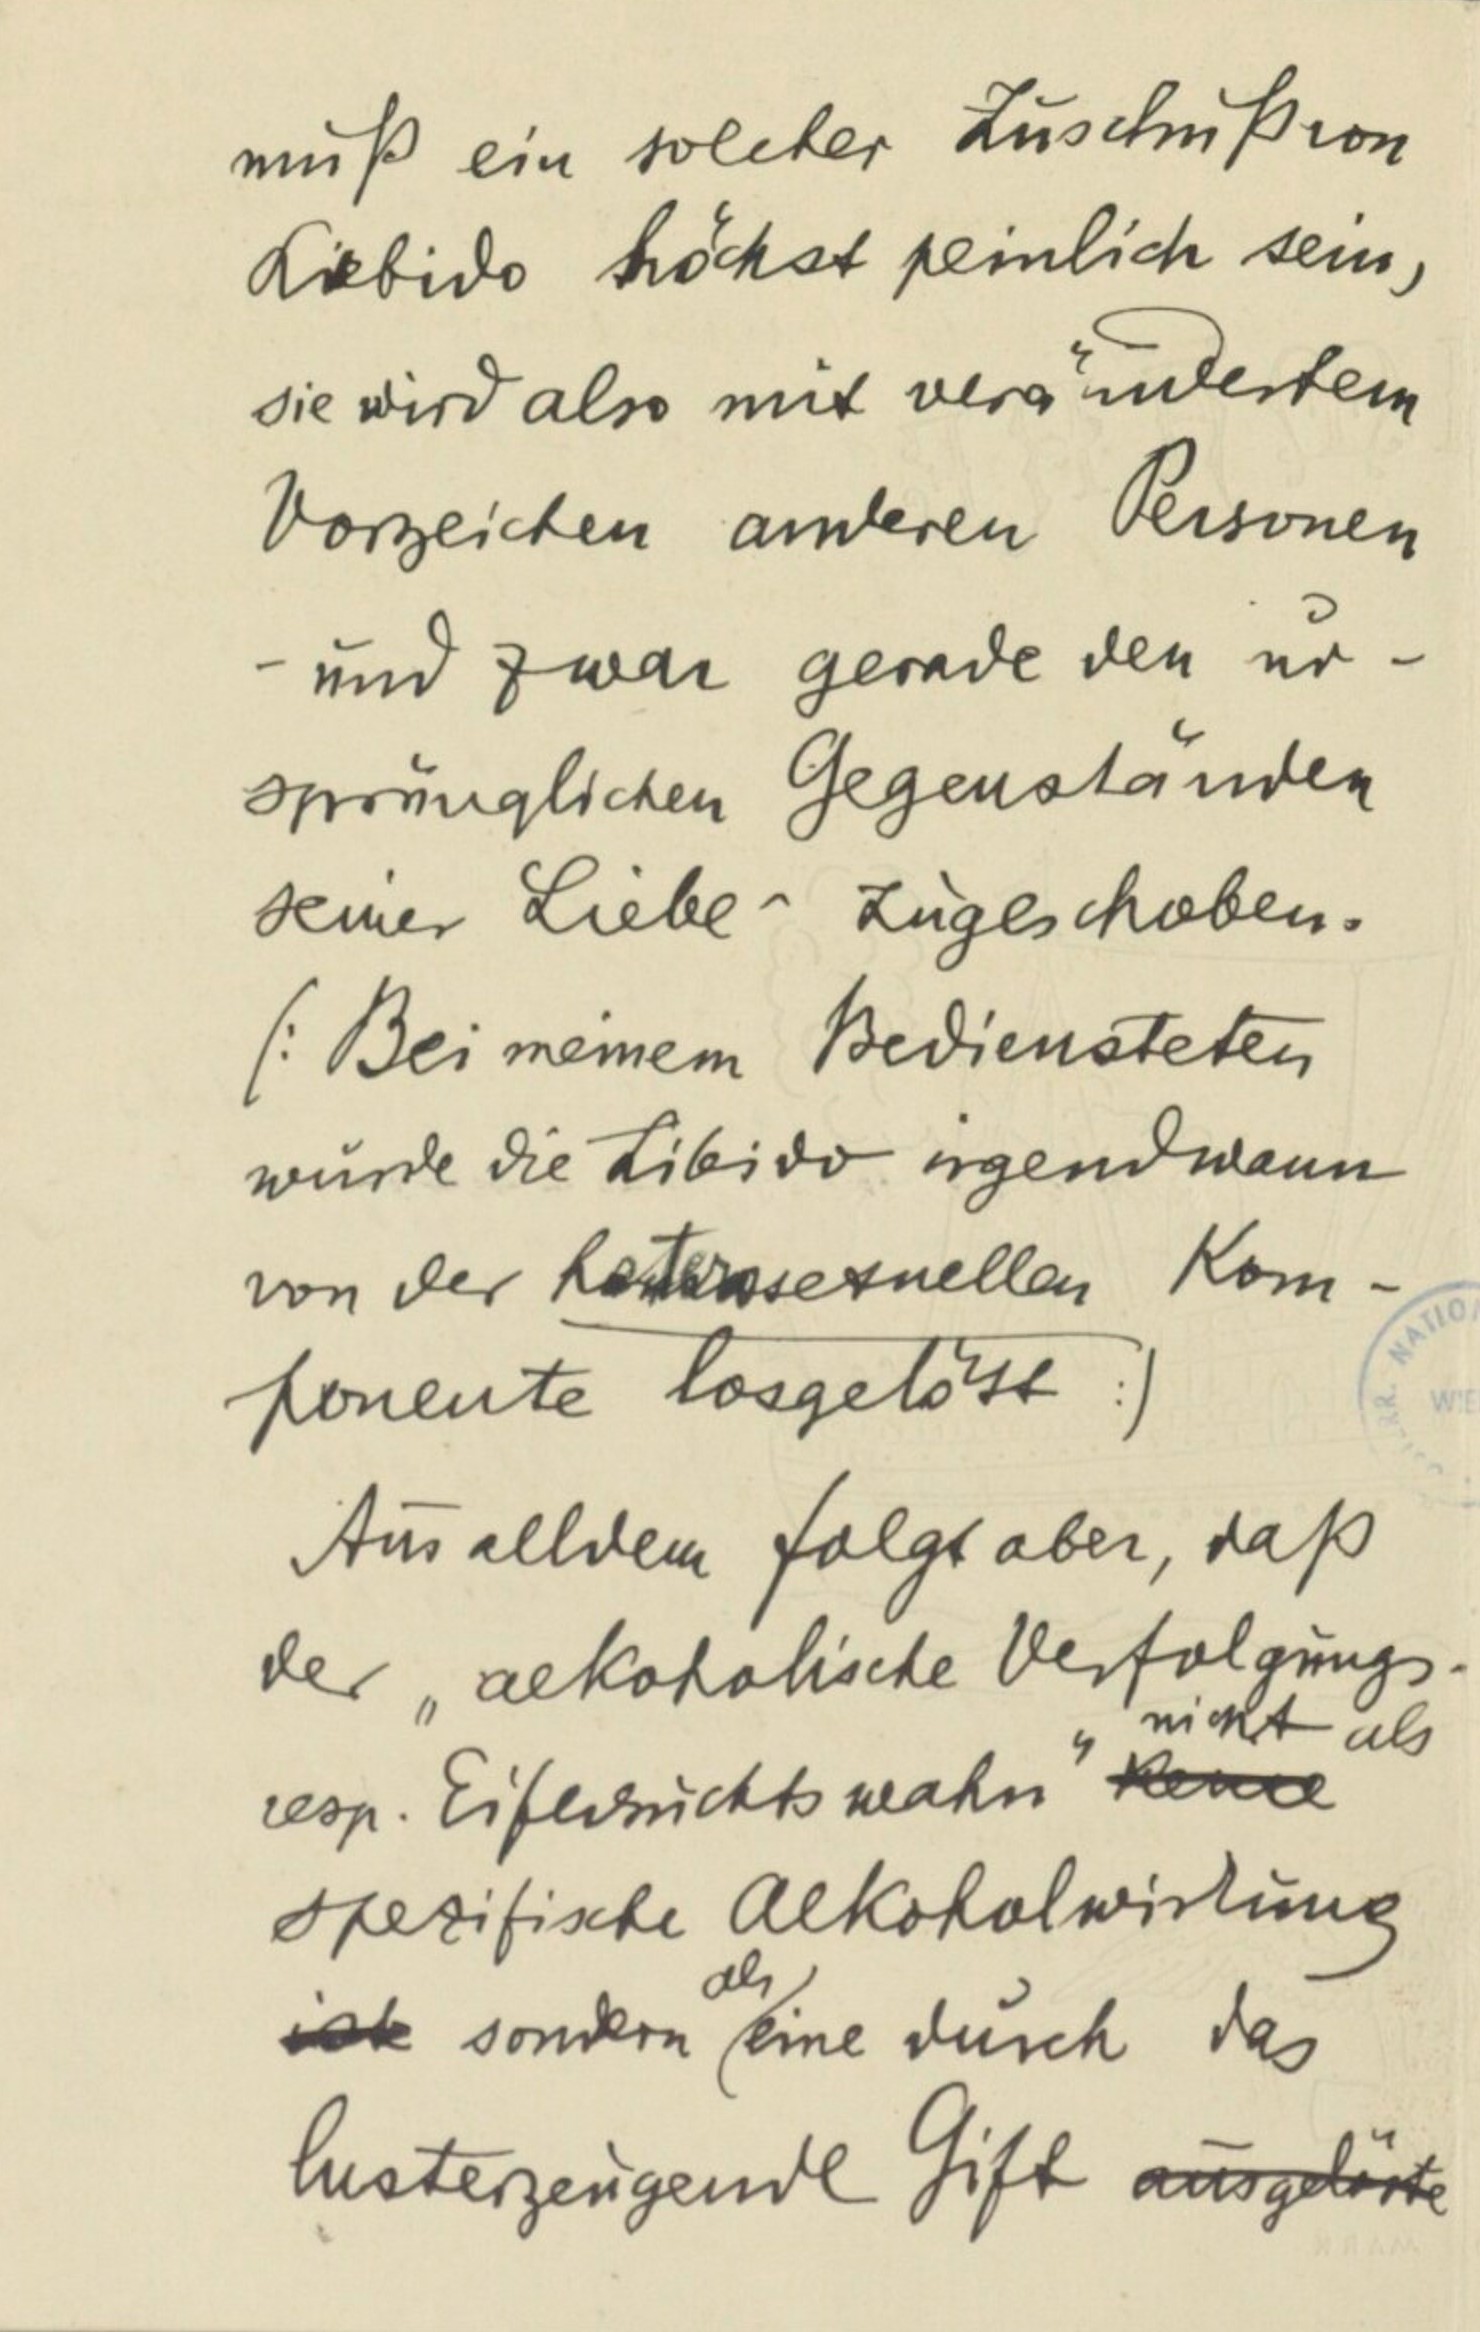 muß ein solcher Zuschuß von
Liebido höchst peinlich sein,
sie wird also mit verändertem
Vorzeichen anderen Personen
- und zwar gerade den ur-
sprünglichen Gegenständen
seiner Liebe - zugeschoben.
(: Bei meinem Bediensteten
wurde die Libido irgendwann
von der heterosexuellen Kom-
ponente losgelöst :)
Aus alldem folgt aber, daß
der „alkoholische Verfolgungs-
nicht als
resp. Eifersuchtswahn"
spezifische Alkoholwirkung
als
ist sondern eine durch das
lusterzeugende Gift ausgelöste
NATIO
WIE